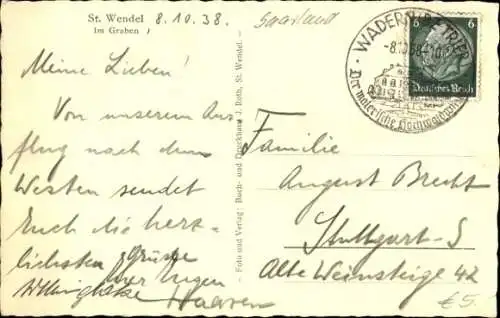 St. Wendel 8.10.38. Saarland
Im Graben
Meine Lieben!
Von unserem Aus-
flug nach dem
Westen sendet
Euch die herz-
lichsten Grüsse
Foto und Verlag: Buch- und Druckhaus J. Roth, St. Wendel.
WADERN BZ. TRIER
-8.10.38
Der malerische Hochwaldort
6 6
Deutsches Reich
Familie
August Brecht
Stuttgart-S
Alte Weinsteige 42
€5.